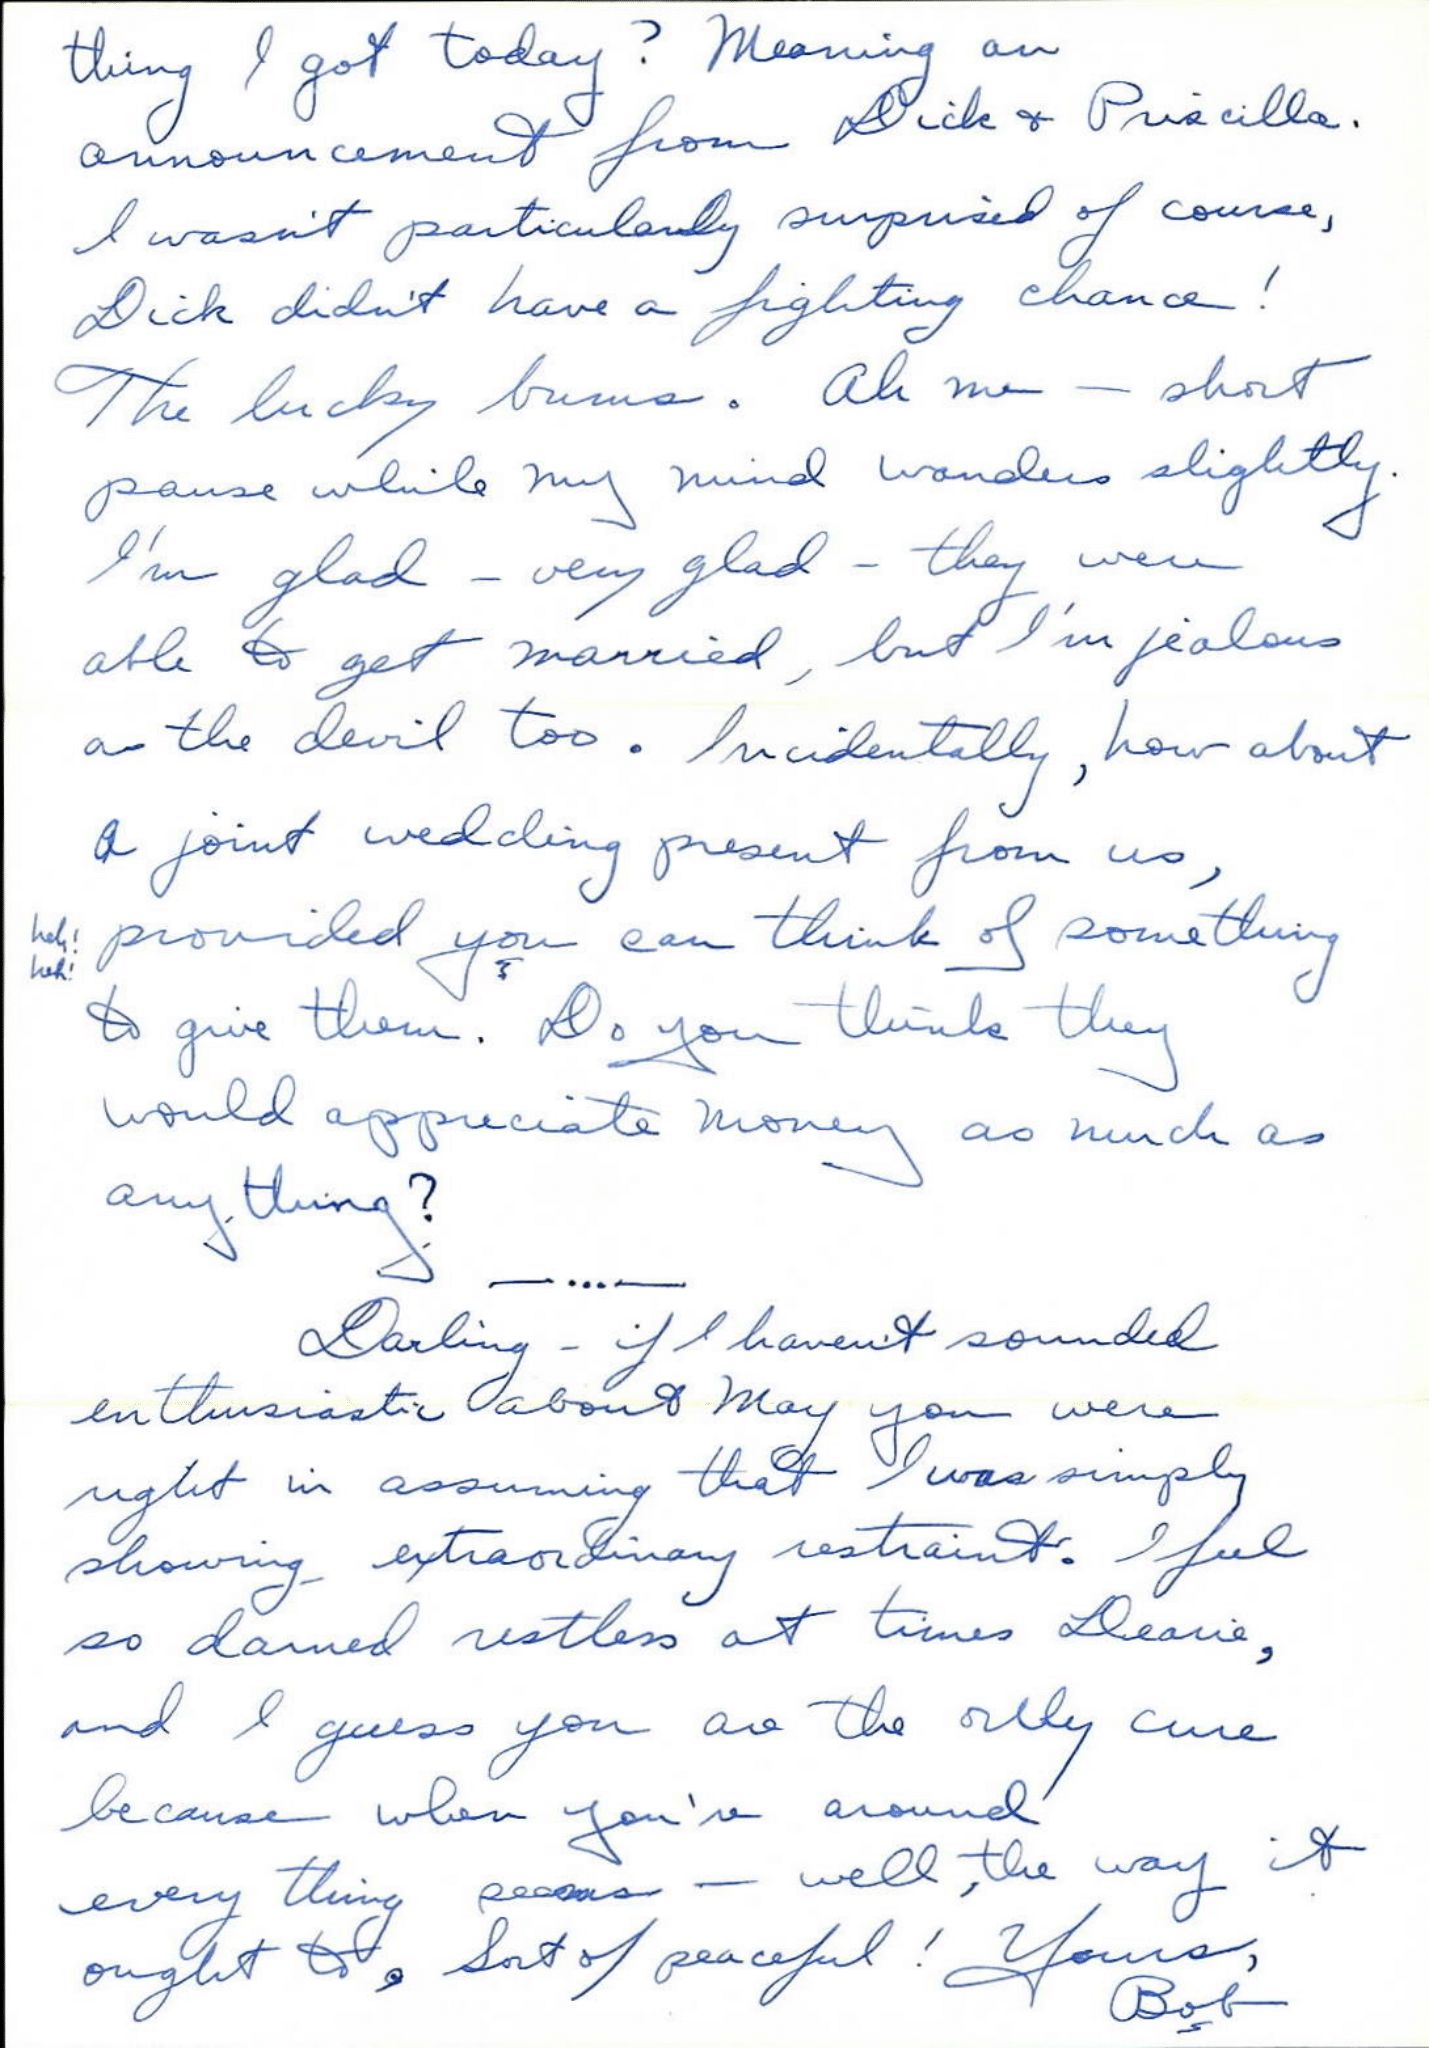 thing I got today? Meaning an
announcement from Dick & Priscilla.
I wasn't particularly surprised of course,
Dick didn't have a fighting chance!
The lucky bums. Ah me — short
pause while my mind wanders slightly.
I'm glad – very glad – they were
able to get married, but I'm jealous
as the devil too. Incidentally, how about
a joint wedding present from us,
heh!
heh!
provided you can think of something
to give them. Do you think they
would appreciate money as much as
anything?
—...—
Darling – if I haven't sounded
enthusiastic about May you were
right in assuming that I was simply
showing extraordinary restraint. I feel
so darned restless at times Dearie,
and I guess you are the only cure
because when you're around
every thing seems — well, the way it
ought to. Sort of peaceful! Yours,
Bob